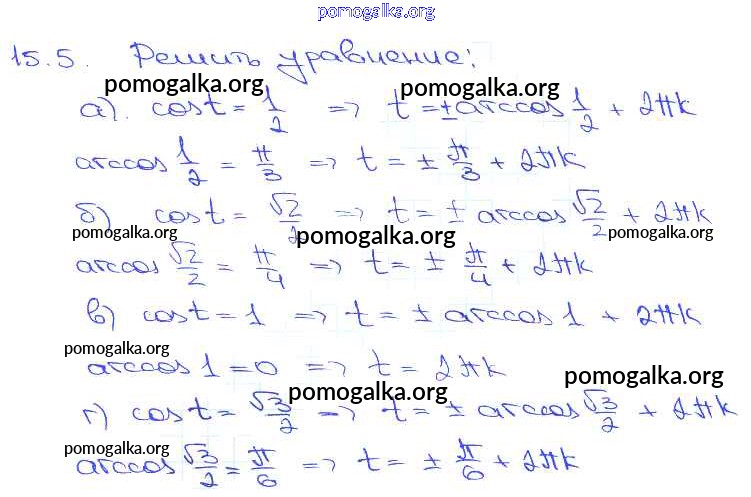 pomogalka.org
15.5. Решить уравнение:
pomogalka.org pomogalka.org
а). cos t = 1/2 => t = ± arccos 1/2 + 2πk
arccos 1/2 = π/3 => t = ± π/3 + 2πk
б) cos t = √2/2 => t = ± arccos √2/2 + 2πk
pomogalka.org pomogalka.org pomogalka.org
arccos √2/2 = π/4 => t = ± π/4 + 2πk
в) cos t = 1 => t = ± arccos 1 + 2πk
pomogalka.org
arccos 1 = 0 => t = 2πk
pomogalka.org pomogalka.org
г) cos t = √3/2 => t = ± arccos √3/2 + 2πk
pomogalka.org
arccos √3/2 = π/6 => t = ± π/6 + 2πk